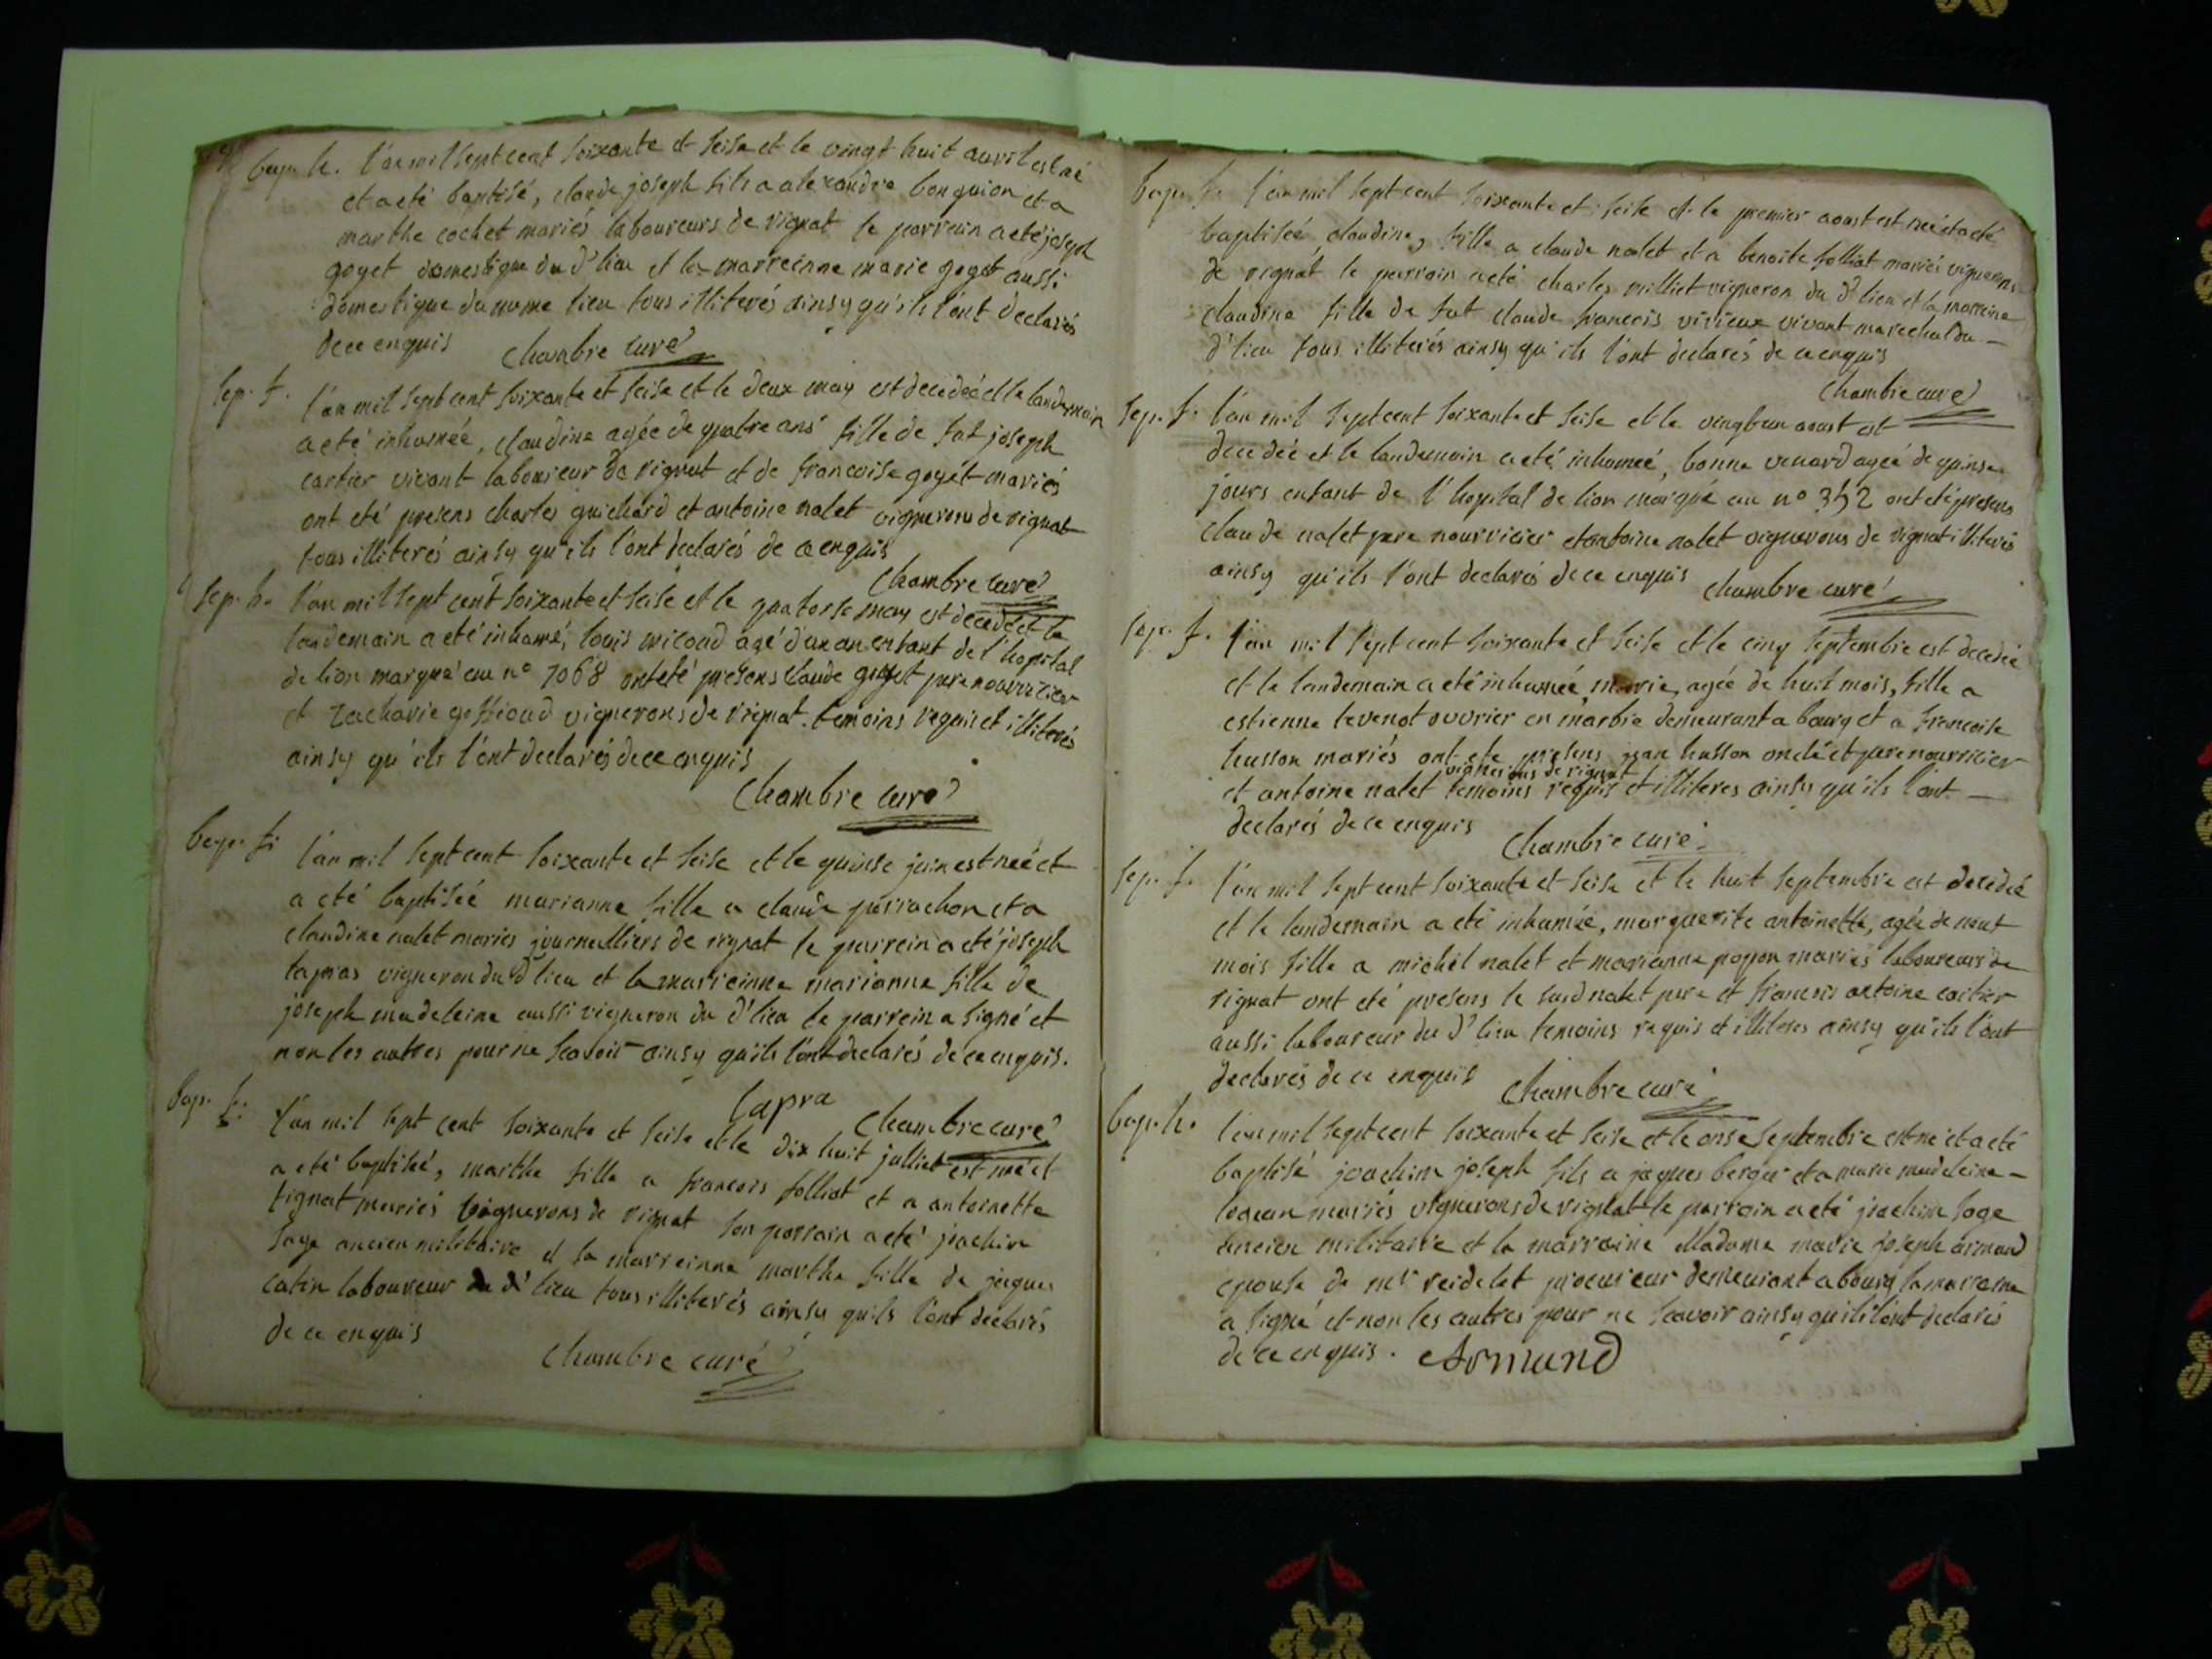 bap. h. l'an mil sept cent soixante et seise et le vingt huit avril est né
et a eté baptisé, claude joseph fils a alexandre bonguion et a
marthe cochet mariés laboureurs de rignat le parrein a eté joseph
goyet domestique du d' lieu et la marreinne marie goyet aussi
domestique du meme lieu tous illiterés ainsy qu'ils l'ont declarés
de ce enquis chambre curé
sep. f. l'an mil sept cent soixante et seise et le deux may est decedeé et le landemain
a eté inhumée, claudine agée de quatre ans fille de fut joseph
cartier vivant laboureur de rignat et de francoise goyet mariés
ont eté presens charles guichard et antoine nalet vignerons de rignat
tous illiterés ainsy qu'ils l'ont declarés de ce enquis
chambre curé
sep. h. l'an mil sept cent soixante et seise et le quatorse may est decedé et le
landemain a eté inhumé, louis micoud agé d'un an enfant de l'hopital
de lion marqué au n° 7068 ont eté presens claude goyet pere nourricier
et zacharie goffioud vignerons de rignat temoins requis et illiterés
ainsy qu'ils l'ont declarés de ce enquis
chambre curé
bap. f. l'an mil sept cent soixante et seise et le quinse juin est neé et
a eté baptisée marianne fille a claude perrachon et a
claudine nalet mariés journalliers de rignat le parrein a eté joseph
lapras vigneron du d' lieu et la marreinne marianne fille de
joseph madeleine aussi vigneron du d' lieu le parrein a signé et
non les autres pour ne scavoir ainsy qu'ils l'ont declarés de ce enquis.
lapra chambre curé
bap. f. l'an mil sept cent soixante et seise et le dix huit julliet est neé et
a eté baptisée, marthe fille a francois folliat et a antoinette
tignat mariés vignerons de rignat son parrain a eté joachin
sage ancien militaire et la marreinne marthe fille de jaques
catin laboureur du d' lieu tous illiterés ainsy qu'ils l'ont declarés
de ce enquis
chambre curé
bap. f. l'an mil sept cent soixante et seise et le premier aoust est neé et a eté
baptiseé claudine, fille a claude nalet et a benoite folliat mariés vignerons
de rignat le parrain a eté charles milliet vigneron du d' lieu et la marreine
claudine fille de fut claude francois virieux vivant marechal du
d' lieu tous illiterés ainsy qu'ils l'ont declarés de ce enquis
chambre curé
sep. f. l'an mil sept cent soixante et seise et le vingt un aoust est
decedée et le landemain a eté inhumeé, bonne venard ageé de quinse
jours enfant de l'hopital de lion marqué au n° 352 ont eté presens
claude nalet pere nourricier et antoine nalet vignerons de rignat illiterés
ainsy qu'ils l'ont declarés de ce enquis chambre curé
sep. f. l'an mil sept cent soixante et seise et le cinq septembre est decedée
et le landemain a eté inhumée marie, agée de huit mois, fille a
estienne tevenot ouvrier en marbre demeurant a bourg et a francoise
husson mariés ont eté presens jean husson oncle et pere nourricier
vignerons de rignat
et antoine nalet temoins requis et illiteres ainsy qu'ils l'ont
declarés de ce enquis chambre curé
sep. f. l'an mil sept cent soixante et seise et le huit septembre est decedeé
et le landemain a eté inhumée, marguerite antoinette, agée de neuf
mois fille a michel nalet et marianne popon mariés laboureurs de
rignat ont eté presens le susd nalet pere et francois antoine cartier
aussi laboureur du d' lieu temoins requis et illiteres ainsy qu'ils l'ont
declarés de ce enquis chambre curé
bap. h. l'an mil sept cent soixante et seise et le onse septembre est né et a eté
baptisé joachim joseph fils a jaques berger et a marie madeleine
mariés vignerons de rignat le parrain a eté joachim sage
ancien militaire et la marraine Madame marie joseph armand
epouse de mr reidelet procureur demeurant a bourg la marraine
a signé et non les autres pour ne scavoir ainsy qu'ils l'ont declarés
de ce enquis. Armand